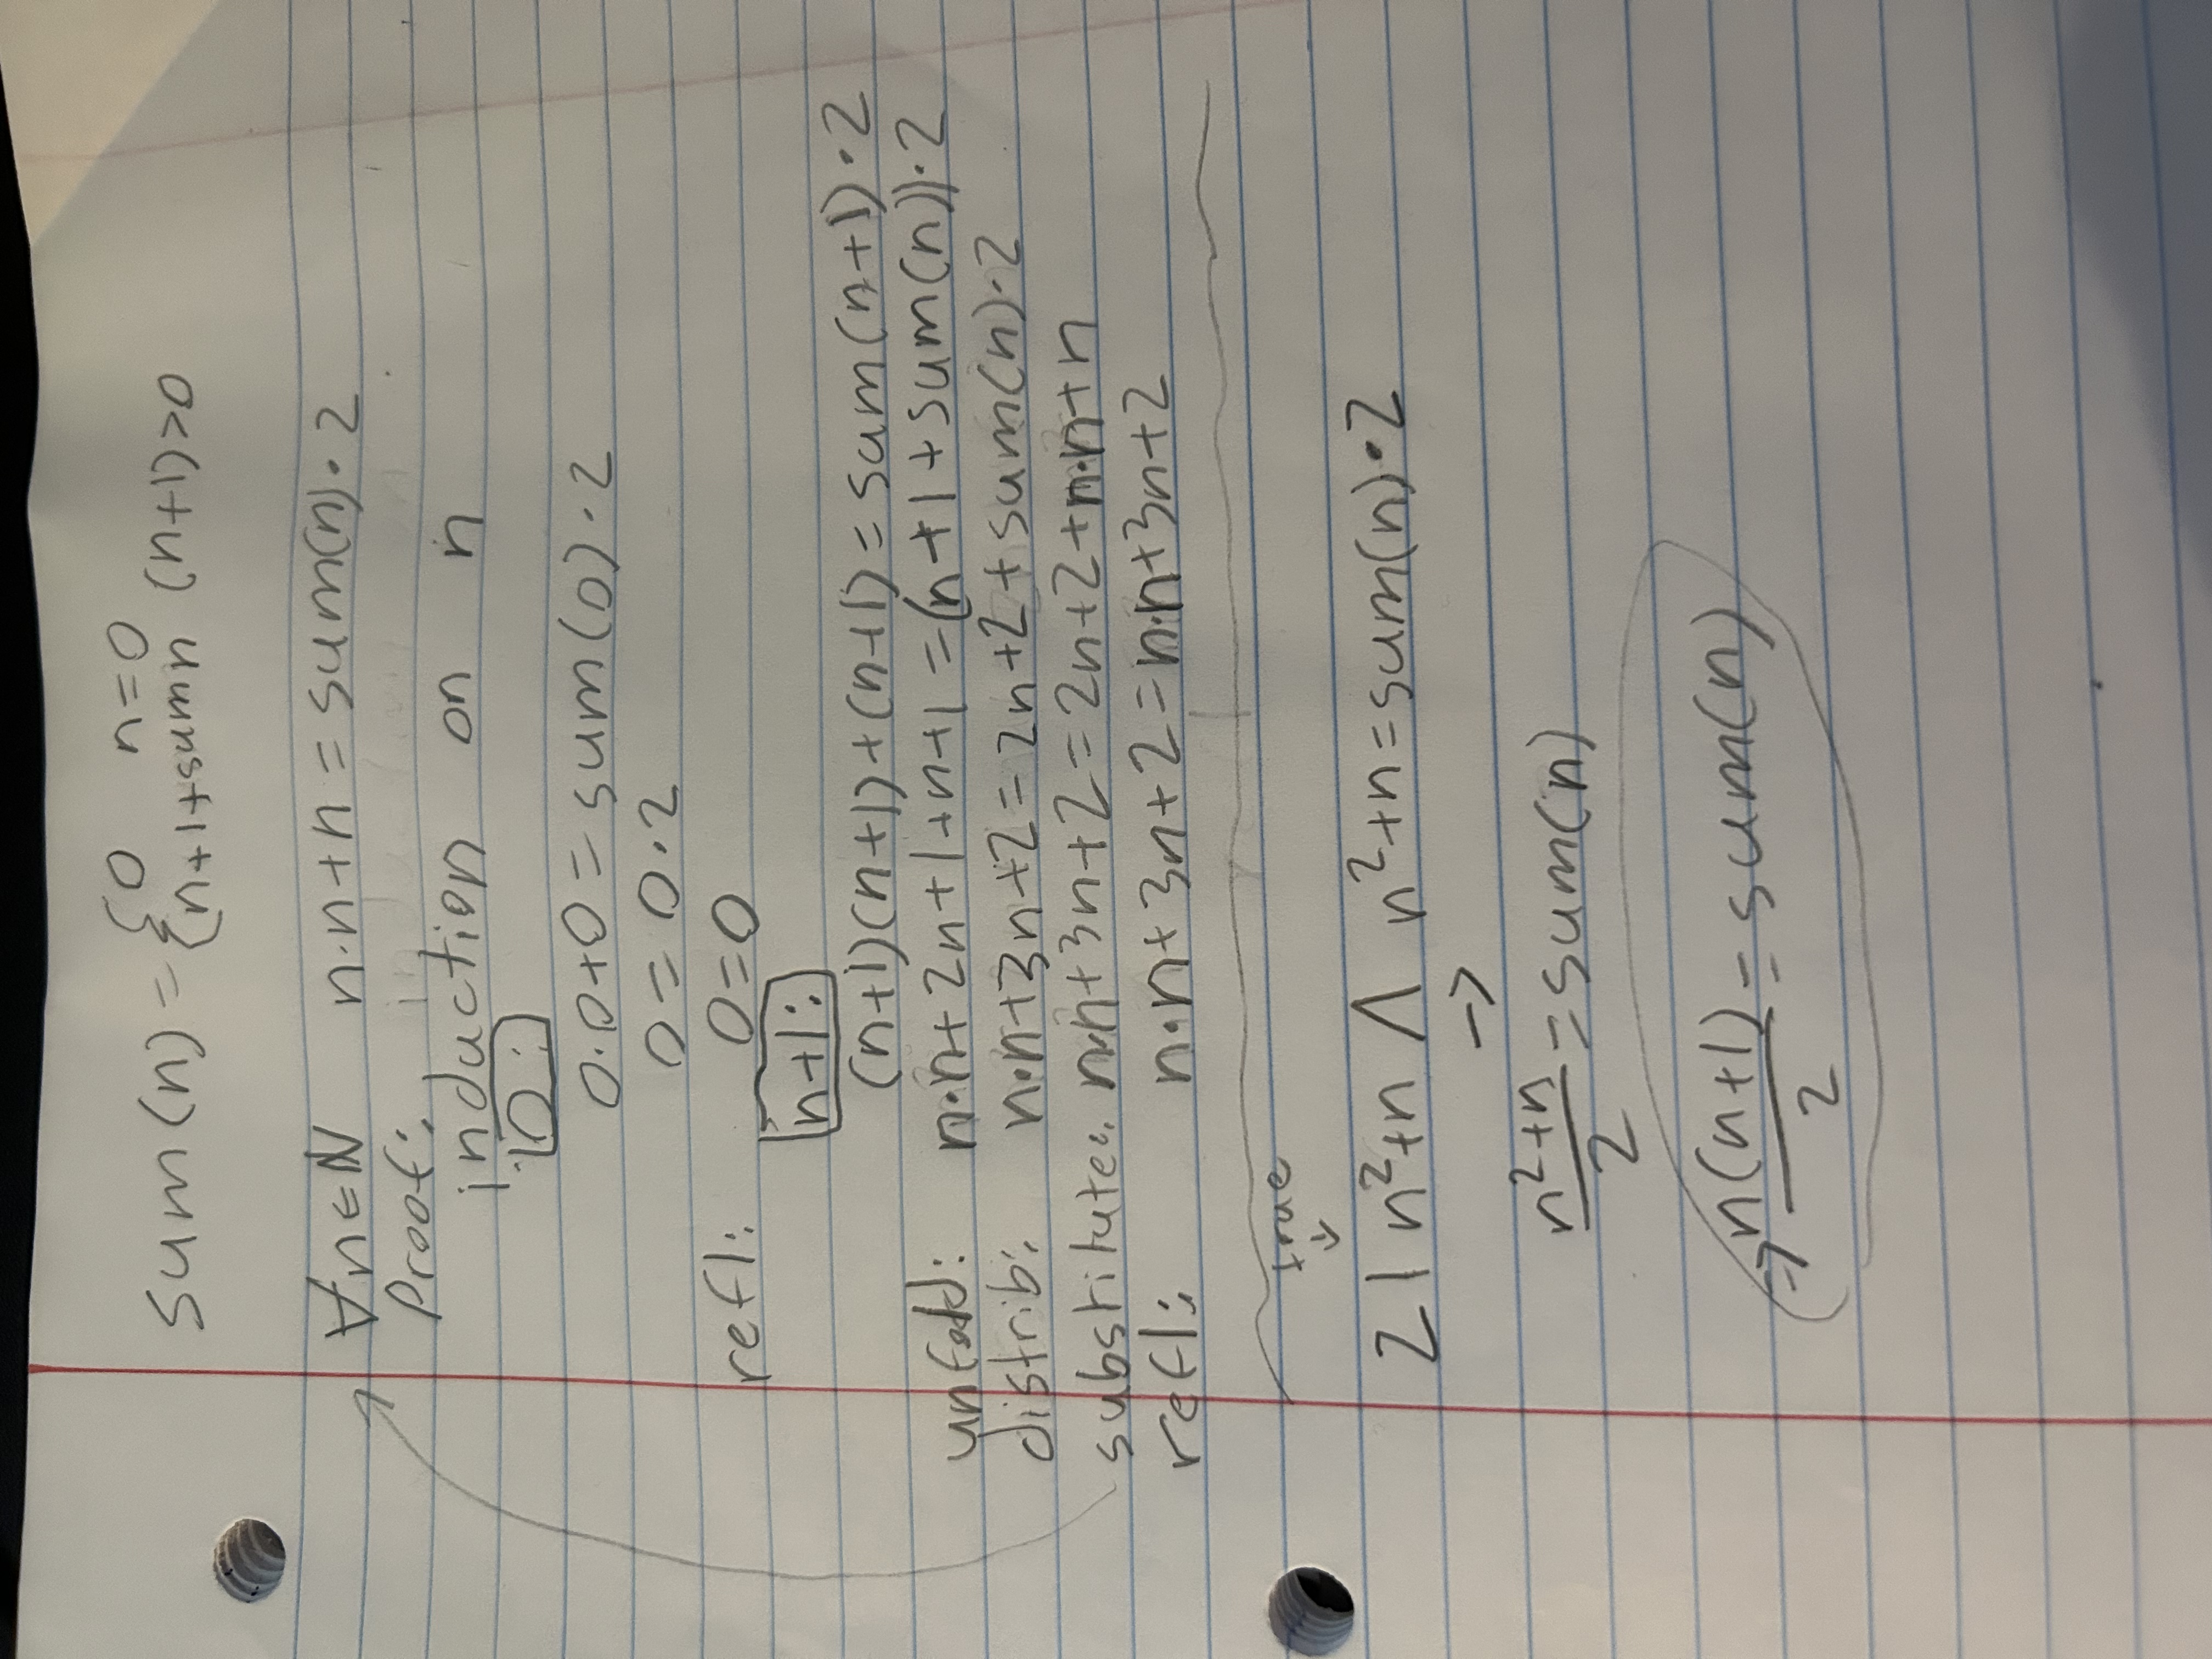 sum(n) = { 0 n=0
{ n+1+sum n (n+1)>0
∀n∈ℕ n·n+n = sum(n)·2
Proof:
induction on n
0:
0·0+0 = sum(0)·2
0 = 0·2
refl: 0=0
n+1:
(n+1)(n+1)+(n+1) = sum(n+1)·2
unfold: n·n+2n+1+n+1 = (n+1+sum(n))·2
distrib: n·n+3n+2 = 2n+2+sum(n)·2
substitute: n·n+3n+2 = 2n+2+n·n+n
refl: n·n+3n+2 = n·n+3n+2
true
↓
2 | n²+n ∧ n²+n = sum(n)·2
→
n²+n / 2 = sum(n)
⇒ n(n+1) / 2 = sum(n)